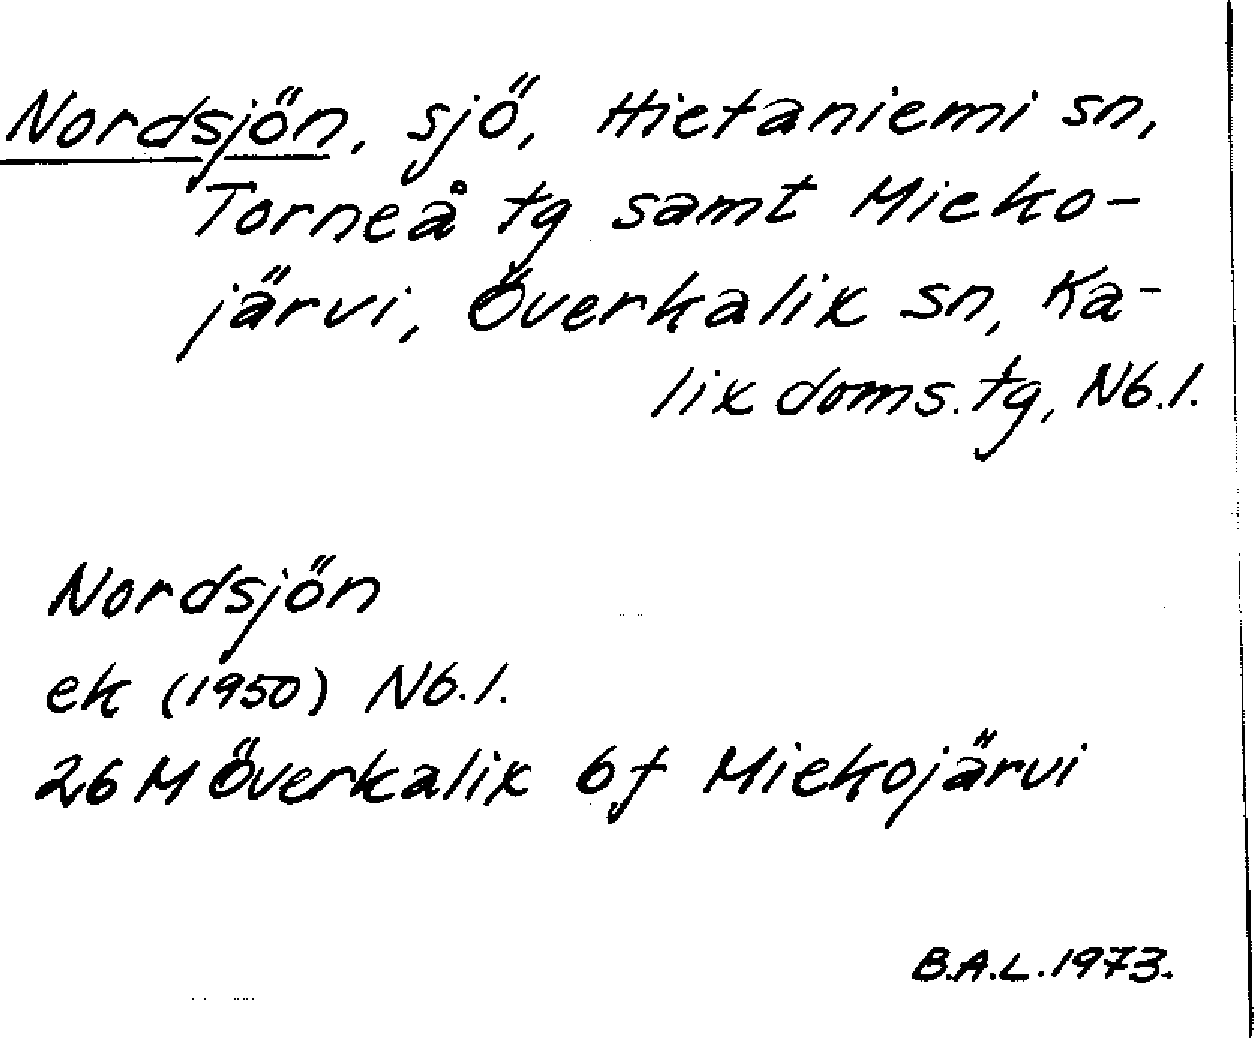 Nordsjön, sjö, Hietaniemi sn,
Torneå tg samt Mieko-
järvi, Överkalix sn, Ka-
lix doms. tg, Nb. l.
Nordsjön
ek (1950) Nb. l.
26 M Överkalix 6 f Miekojärvi
B.A.L. 1973.